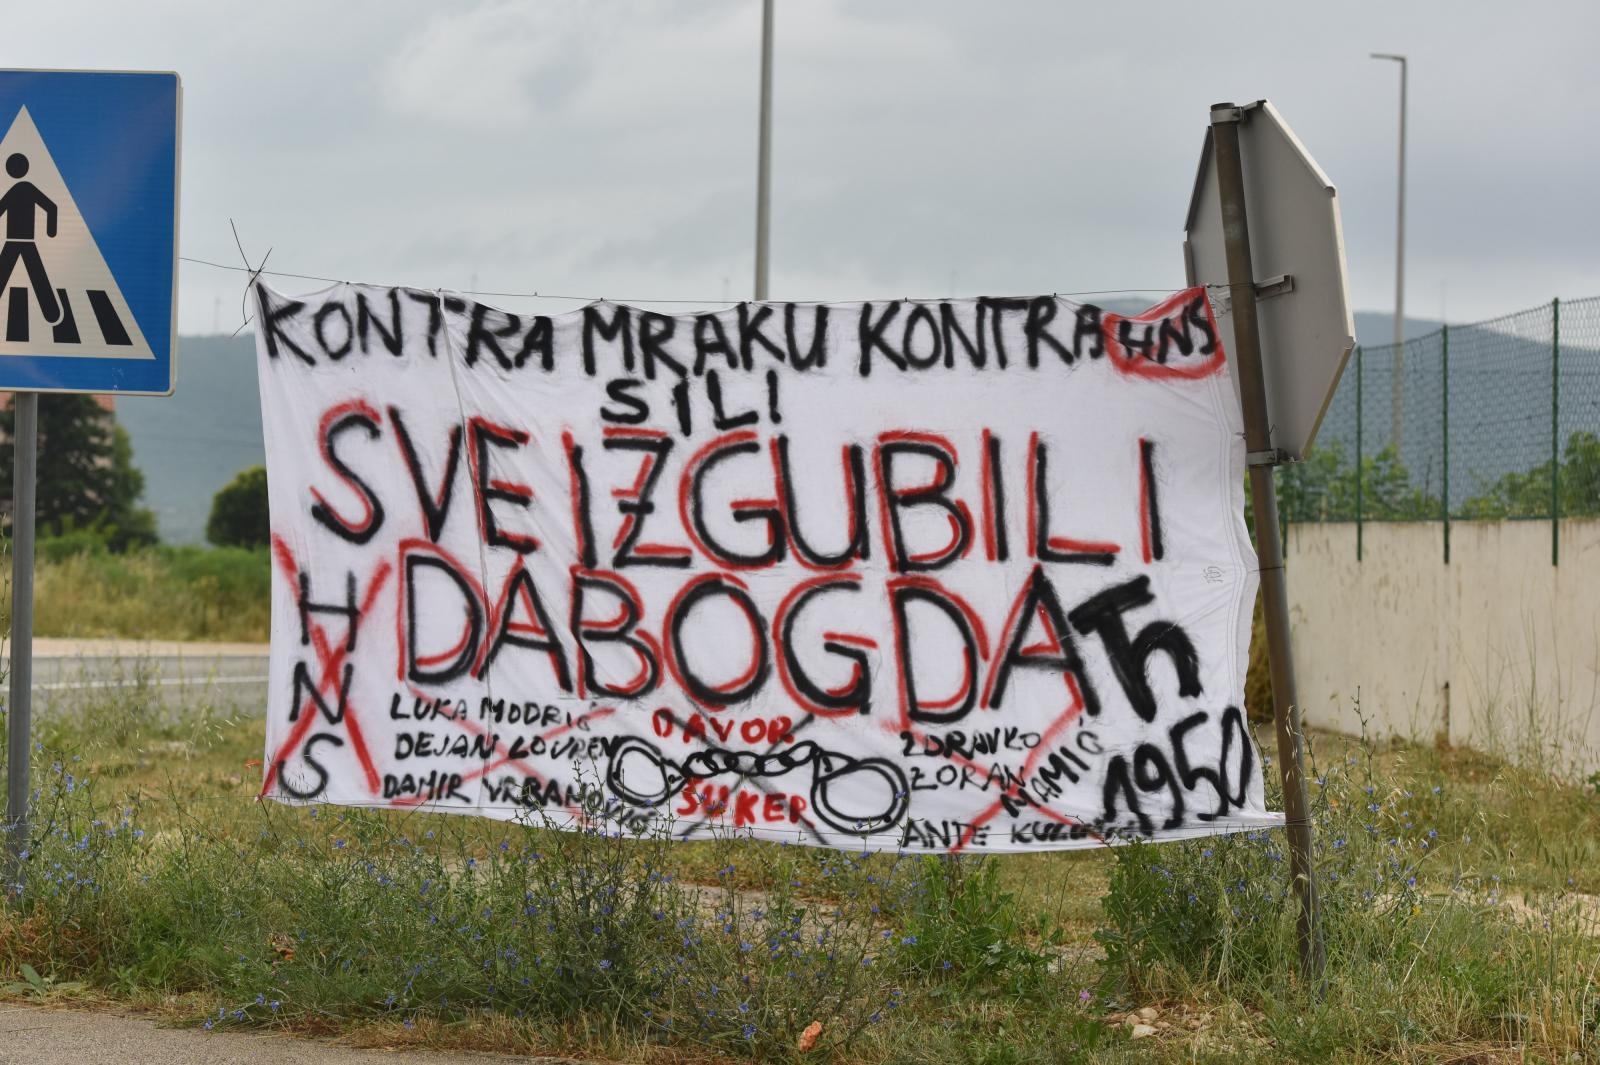 KONTRA MRAKU KONTRA HNS
SILI
SVE IZGUBILI
DABOGDA Ћ
H
N
S
LUKA MODRIĆ
DEJAN LOVREN
DAMIR VRBANOVIĆ
DAVOR
ŠUKER
ZDRAVKO
ZORAN
MAMIĆ
ANTE
1950